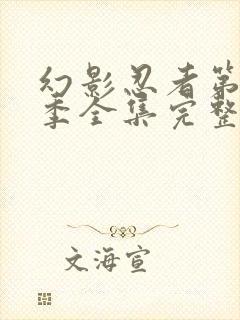 幻影忍者第
季全集完整
文海宣